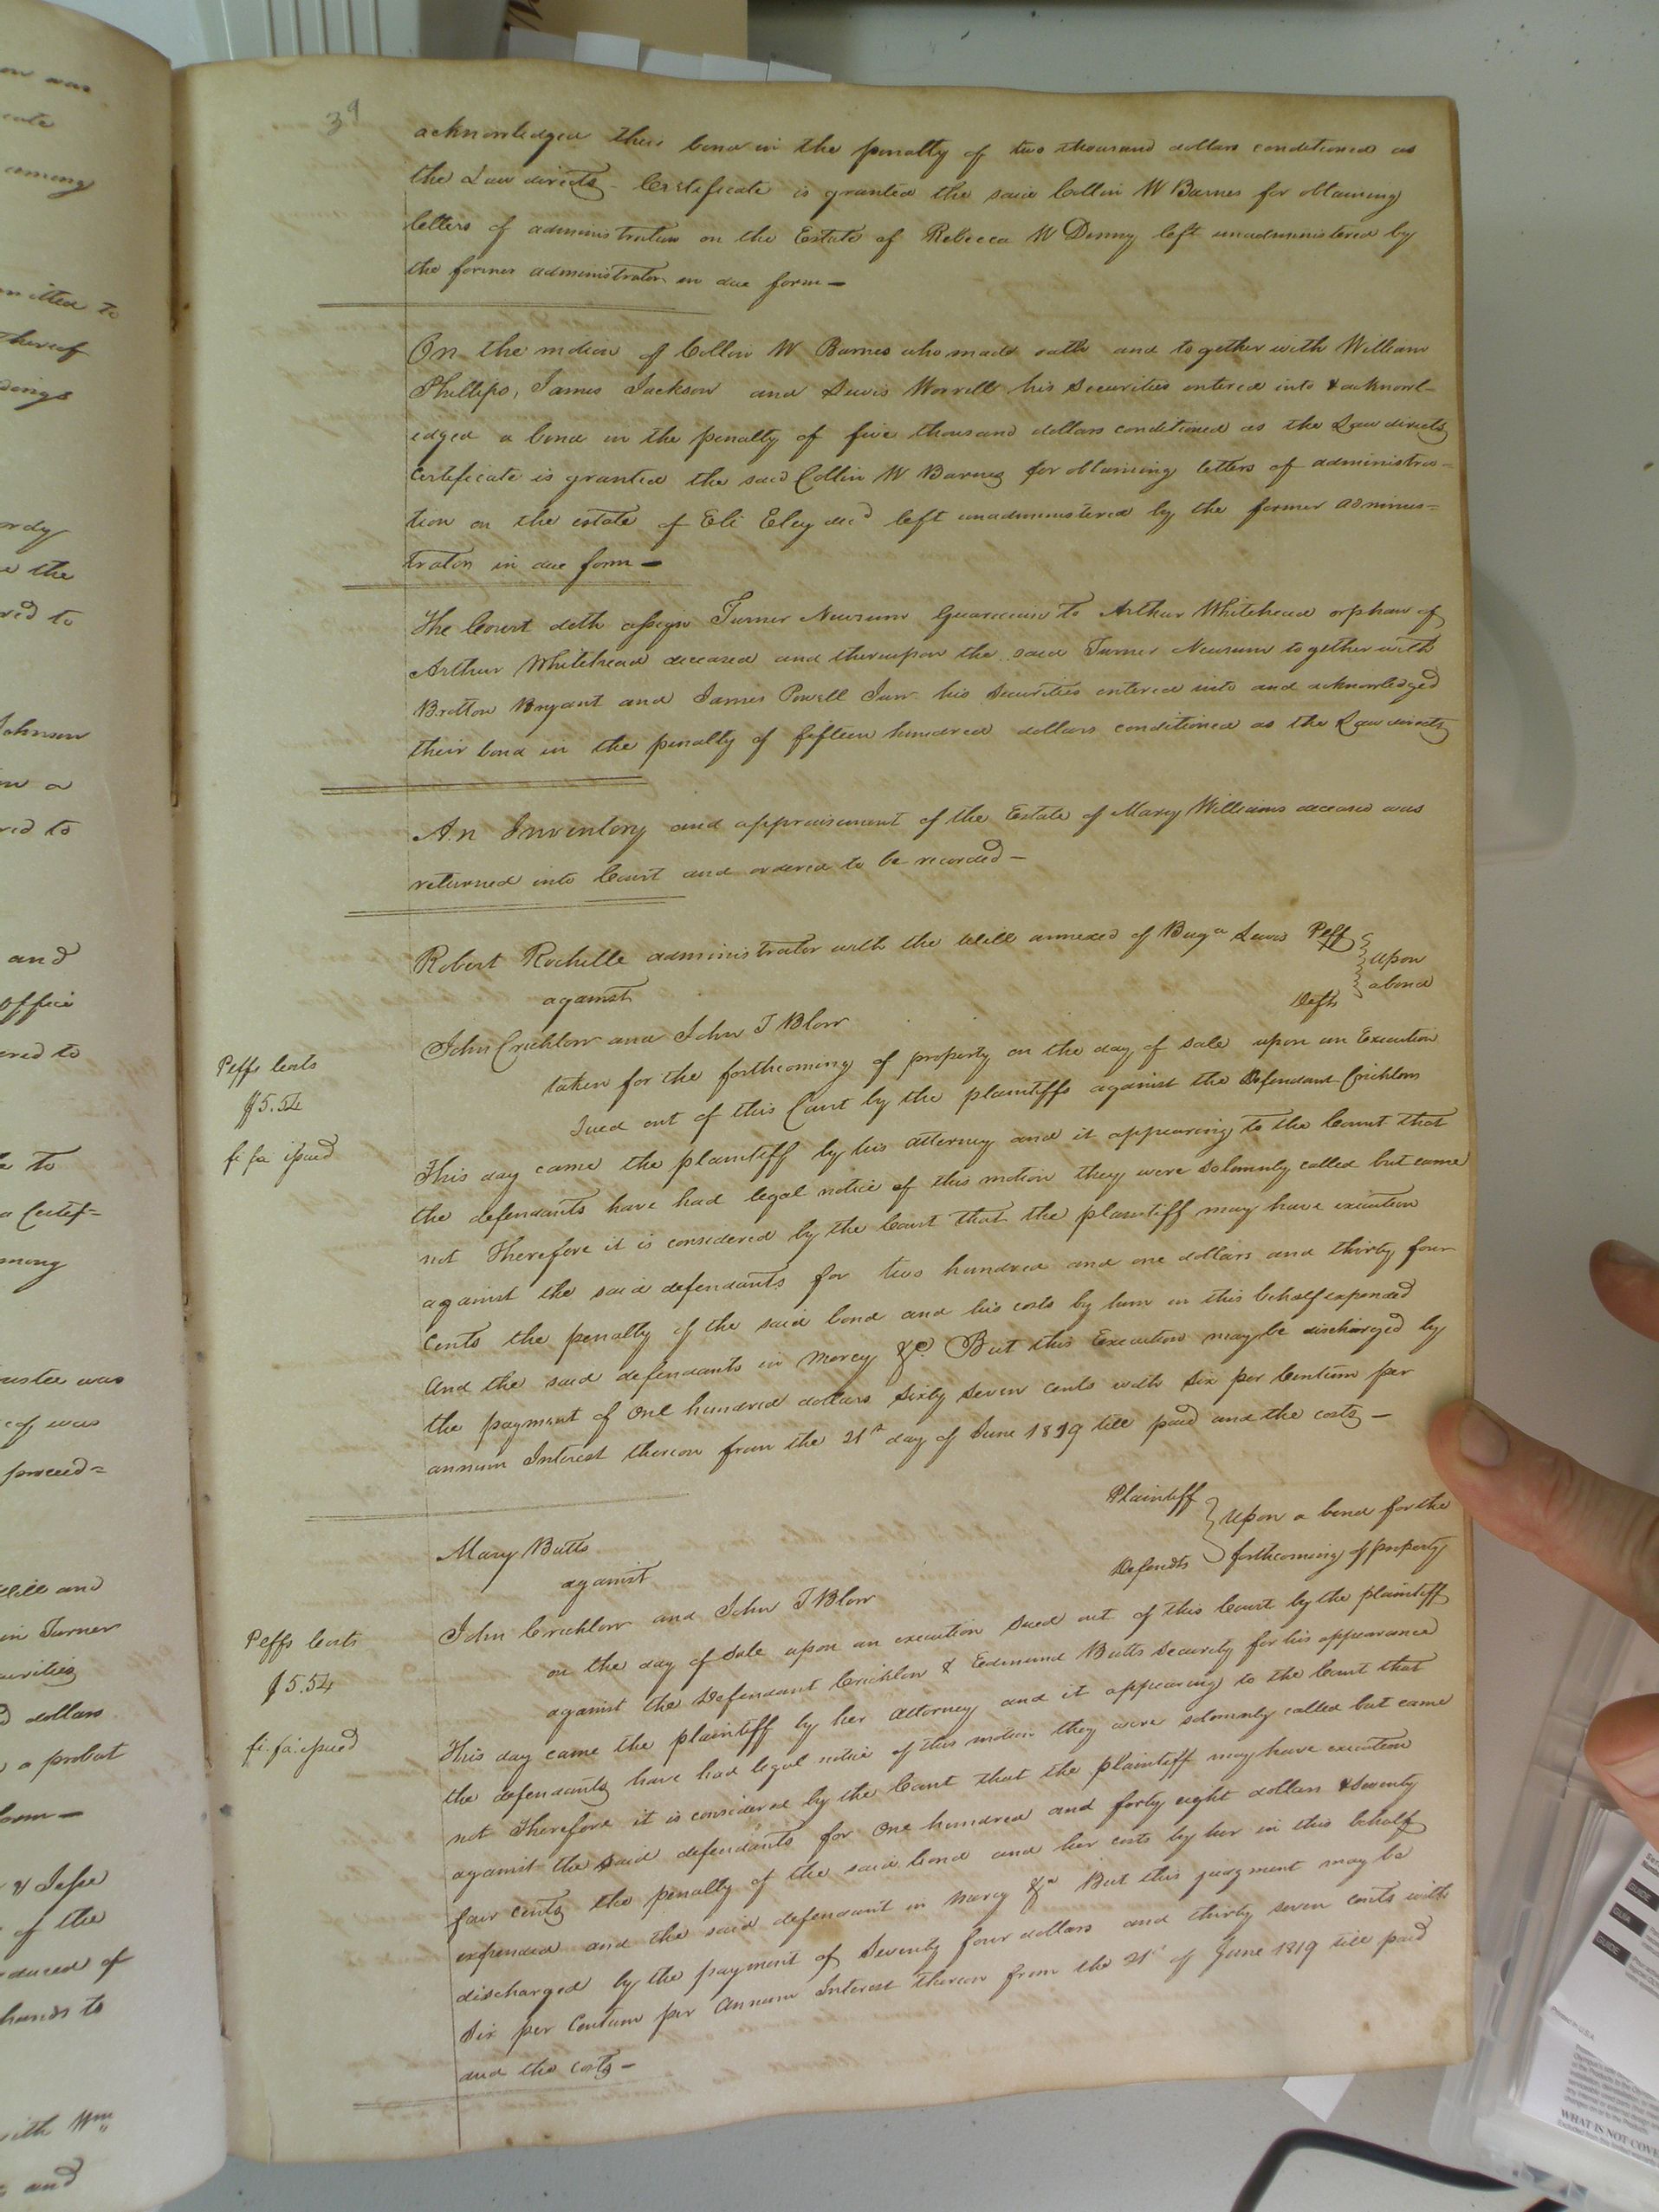 39
acknowledged their bond in the penalty of two thousand dollars conditioned as
the Law directs - Certificate is granted the said Collin W Barnes for obtaining
letters of administration on the Estate of Rebecca W Denny left unadministered by
the former administrator in due form -
On the motion of Collin W Barnes who made oath and together with William
Phillips, James Jackson and Lewis Worrell his Securities entered into & acknowl-
edged a bond in the penalty of five thousand dollars conditioned as the Law directs
Certificate is granted the said Collin W Barnes for obtaining letters of administra-
tion on the estate of Eli Eley decd left unadministered by the former adminis=
trator in due form -
The Court doth assign Turner Newsum Guardian to Arthur Whitehead orphan of
Arthur Whitehead deceased and thereupon the said Turner Newsum together with
Britton Bryant and James Powell Junr his Securities entered into and acknowledged
their bond in the penalty of fifteen hundred dollars conditioned as the Law directs
An Inventory and appraisement of the Estate of Mary Williams deceased was
returned into Court and ordered to be recorded -
Robert Rochelle administrator with the Will annexed of Lewis Plff
against
upon
a bond
Defts
John Crichlow and John T Blow
taken for the forthcoming of property on the day of sale upon an Execution
Sued out of this Court by the plaintiffs against the Defendant Crichlow
Plffs Costs
$5.54
fi fa issued
This day came the plaintiff by his attorney and it appearing to the Court that
the defendants have had legal notice of this motion they were Solemnly called but came
not Therefore it is considered by the Court that the plaintiff may have execution
against the said defendants for two hundred and one dollars and thirty four
Cents the penalty of the said bond and his costs by him in this behalf expended
And the said defendants in Mercy &c. But this Execution may be discharged by
the payment of One hundred dollars Sixty Seven Cents with Six per Centum per
annum Interest thereon from the 21st day of June 1819 till paid and the costs -
Mary Butts
Plaintiff
against
Upon a bond for the
forthcoming of property
Defendts
John Crichlow and John T Blow
on the day of Sale upon an execution Sued out of this Court by the plaintiff
against the Defendant Crichlow & Edmund Butts Security for his appearance
Plffs Costs
$5.54
fi. fa. issued
This day came the plaintiff by her Attorney and it appearing to the Court that
the defendants have had legal notice of this motion they were solemnly called but came
not Therefore it is considered by the Court that the plaintiff may have execution
against the Said defendants for One hundred and forty eight dollars & Seventy
four Cents the penalty of the said bond and her costs by her in this behalf
expended and the said defendant in Mercy &c But this judgment may be
discharged by the payment of Seventy four dollars and thirty seven Cents with
Six per Centum per Annum Interest thereon from the 21st of June 1819 till paid
and the costs -